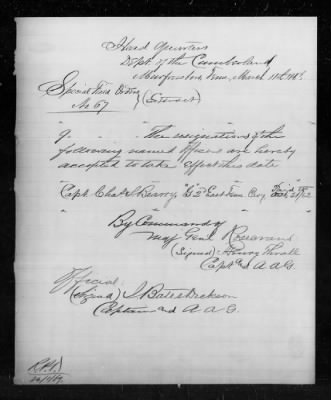 Head Quarters
Dept of the Cumberland
Murfreesboro Tenn, March 11th
Special Field Orders
No 67 } (Extract)
" " " " "
The resignations of the
following named officers are hereby
accepted to take effect this date
" " " " "
Capt. Chas L Barry "G" 2d East Tenn Cvy
By Command of
Maj Genl Rosecrans
(Signed) Henry Thrall
Capt and A A G
Official
(Signed) J Bates Dickson
Captain and A A G